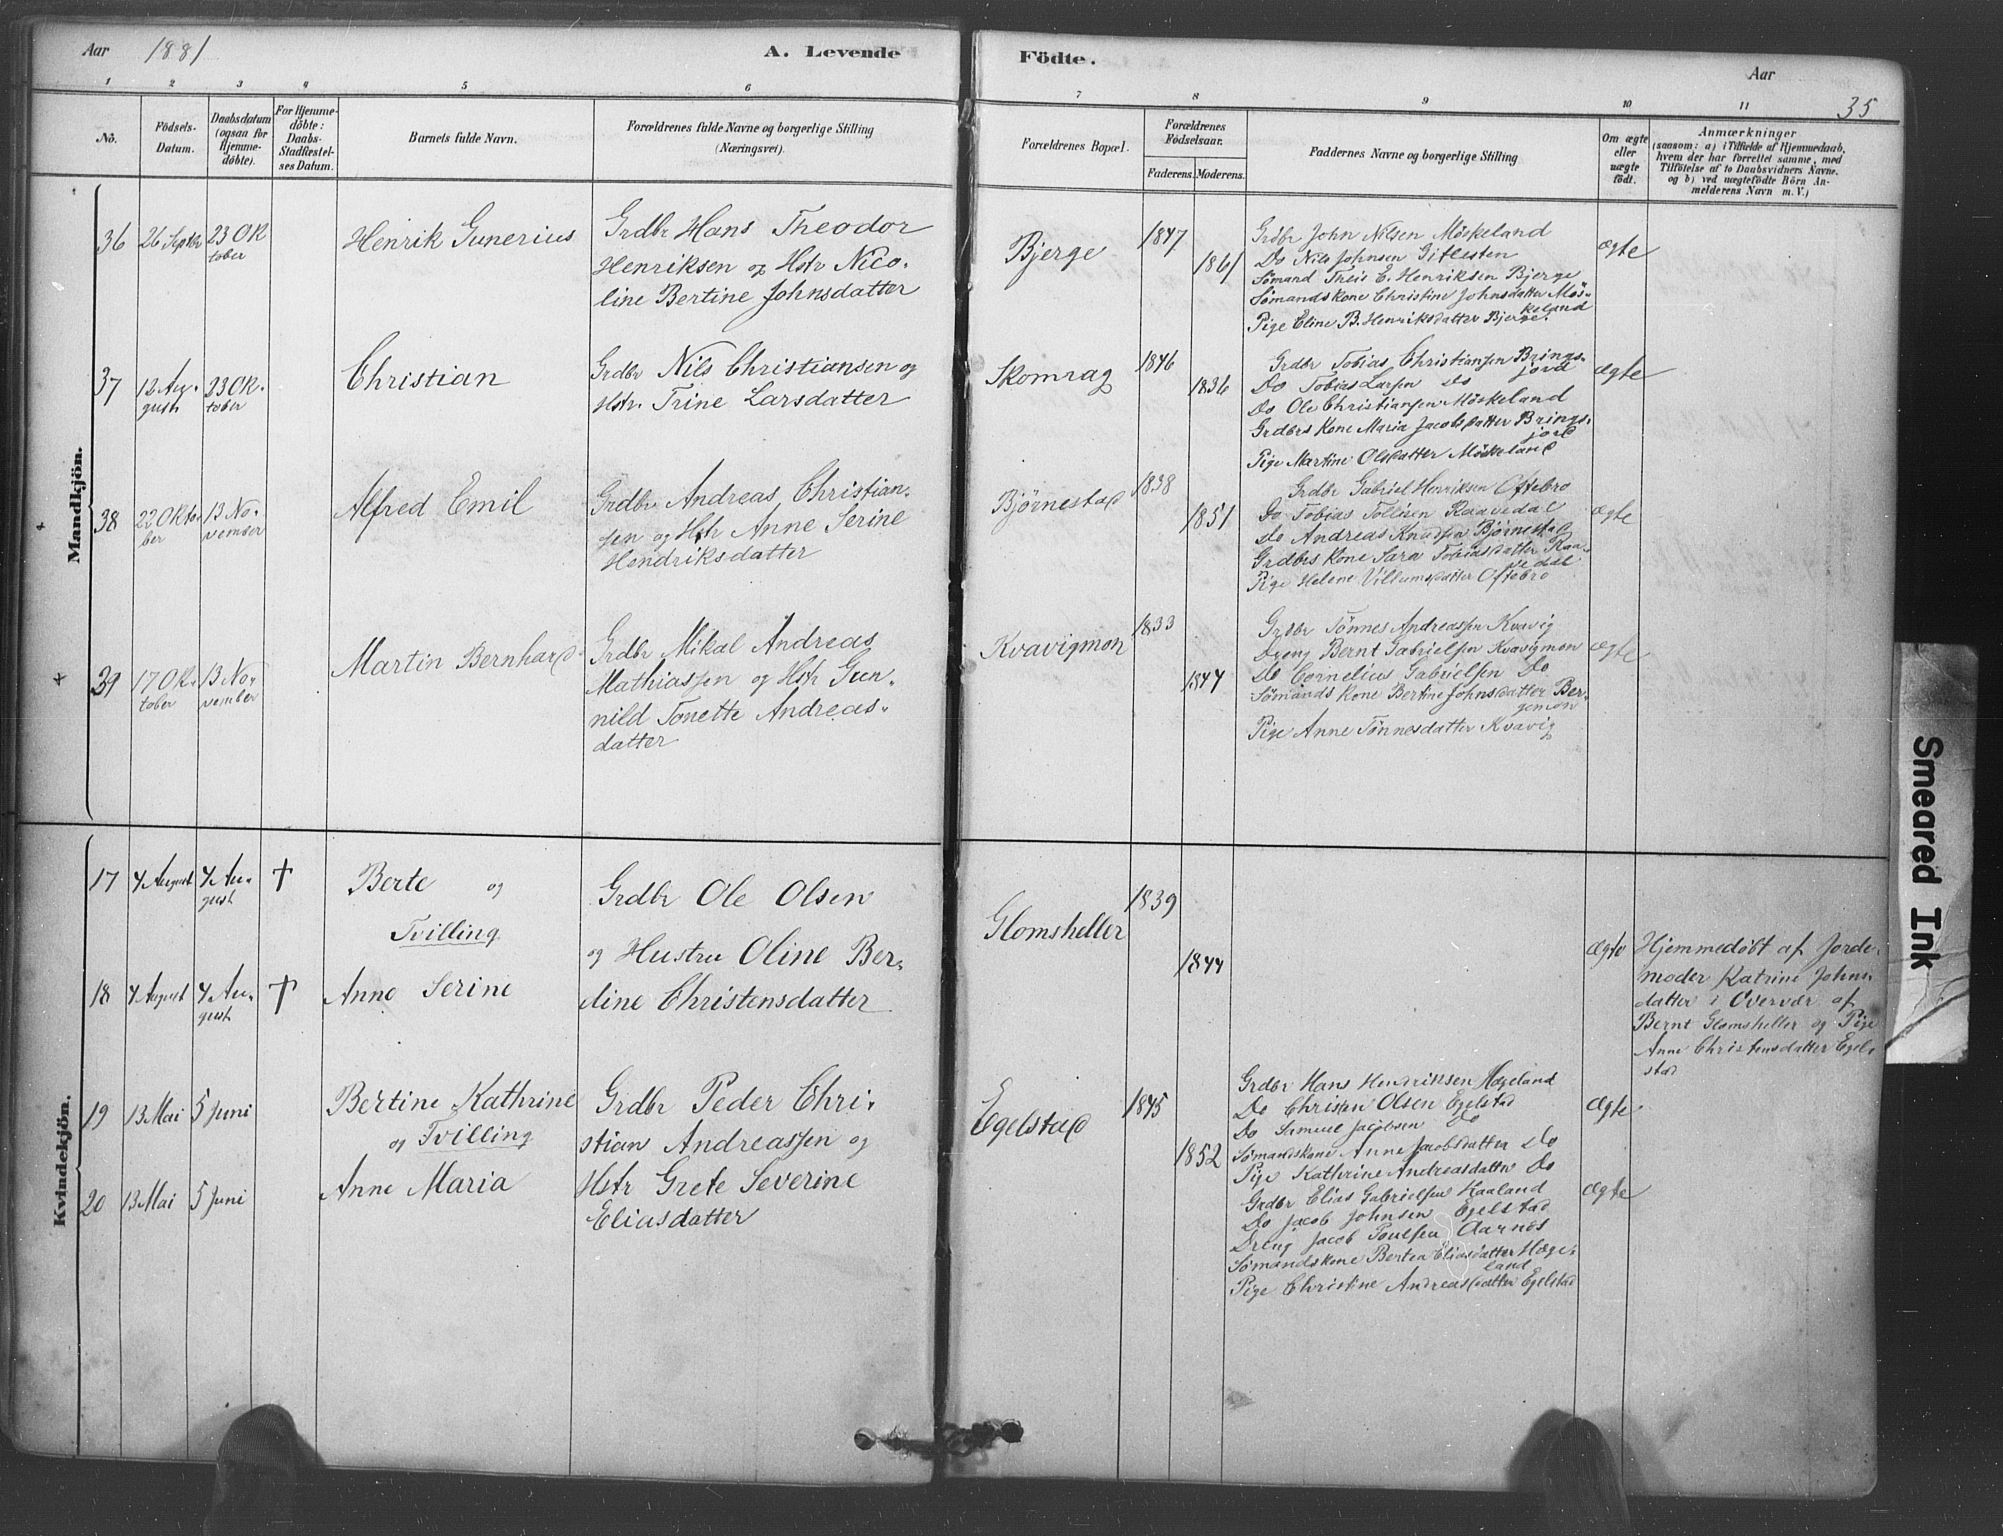 Aar 1881
A. Levende Födte.
Aar
35
1 2 3 4 5 6 7 8 9 10 11
No.
Födsels-Datum.
Daabsdatum (ogsaa for Hjemmedöbte).
For Hjemmedöbte: Daabs-Stadfæstelses Datum.
Barnets fulde Navn.
Forældrenes fulde Navne og borgerlige Stilling (Næringsvei).
Forældrenes Bopæl.
Forældrenes Födselsaar.
Faderens. Moderens.
Faddernes Navne og borgerlige Stilling
Om ægte eller uægte födt.
Anmærkninger
(saasom: a) i Tilfælde af Hjemmedaab, hvem der har forrettet samme, med Tilföielse af to Daabsvidners Navne, og b) ved uægtefödte Börn Anmelderens Navn m. V.)
Mandkjön.
36 26 Septbr 23 Ok
tober
Henrik Gunerius
Grdbr Hans Theodor
Henriksen og Hstr Nico-
line Bertine Johnsdatter
Bjerge
1847
1861
Grdbr John Nilsen Möskeland
Do Nils Johnsen Gitlesten
Sømand Theis E. Henriksen Bjerge
Sømandskone Christine Johnsdatter Mös-
keland
Pige Eline B. Henriksdatter Bjerge.
ægte
37 12 Au-
gust
23 Ok-
tober
Christian
Grdbr Nils Christiansen og
Hstr. Trine Larsdatter
Skomrag
1846
1836
Grdbr Tobias Christiansen Brings-
jord
Do Tobias Larsen do
Do Ole Christiansen Möskeland
Grdbrs Kone Maria Jacobsdatter Brings-
jord
Pige Martine Olsdatter Möskeland
ægte
38 22 Okto-
ber
13 No-
vember
Alfred Emil
Grdbr Andreas Christian-
sen og Hstr Anne Serine
Hendriksdatter
Bjørnestad
1838
1851
Grdbr Gabriel Henriksen Oftebro
Do Tobias Tollisen Raavedal
Do Andreas Knudsen Bjørnestad
Grdbrs Kone Sara Tobiasdatter Raa-
vedal
Pige Helene Villumsdatter Oftebro
ægte
39 17 Ok-
tober
13 No-
vember
Martin Bernhard
Grdbr Mikal Andreas
Mathiassen og Hstr Gun-
nild Tonette Andreas-
datter
Kvavigmon
1833
1847
Grdbr Tønnes Andreassen Kvavig
Dreng Bernt Gabrielsen Kvavigmon
Do Cornelius Gabrielsen Do
Sømands Kone Bertine Johnsdatter Ber-
gemon
Pige Anne Tønnesdatter Kvavig
ægte
Kvindekjön.
17 4 August 4 Au-
gust
†
Berte og
Tvilling
Grdbr Ole Olsen
og Hustru Oline Ber-
Glomsheller
1839
1844
18 4 August 4 Au-
gust
†
Anne Serine
tine Christensdatter
ægte
Hjemmedøbt af Jorde-
moder Katrine Johns-
datter i Overvær af
Bernt Glomsheller og Pige
Anne Christensdatter Egel-
stad
19 13 Mai 5 Juni
Bertine Kathrine
og Tvilling
Grdbr Peder Chri-
stian Andreassen og
Egelstad
1845
1852
Grdbr Hans Hendriksen Hægeland
Do Christen Olsen Egelstad
Do Samuel Jacobsen Do
Sømandskone Anne Jacobsdatter Do
Pige Kathrine Andreasdatter Do
ægte
20 13 Mai 5 Juni
Anne Maria
Hstr Grete Severine
Eliasdatter
Grdbr Elias Gabrielsen Haaland
Do Jacob Johnsen Egelstad
Dreng Jacob Poulsen Aarnes
Sømandskone Bertea Eliasdatter Hæge-
land
Pige Christine Andreasdatter Egelstad
ægte
Smeared Ink